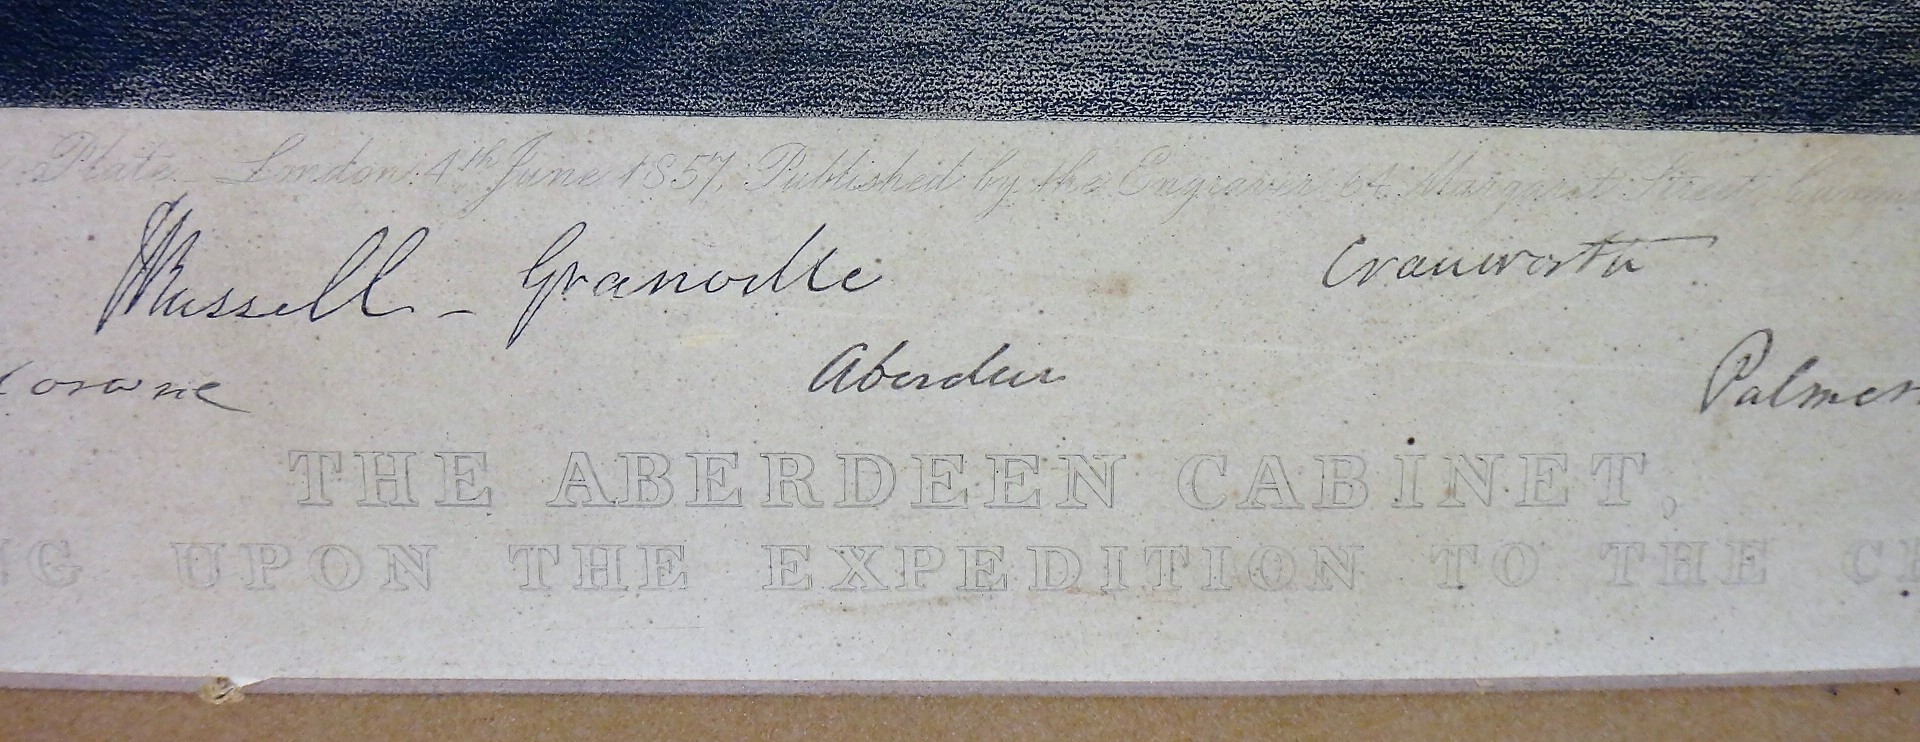 Plate. London. 4th June 1857, Published by the Engraver, 64. Margaret Street,
JRussell - Granville Cranworth
Aberdeen
THE ABERDEEN CABINET,
UPON THE EXPEDITION TO THE